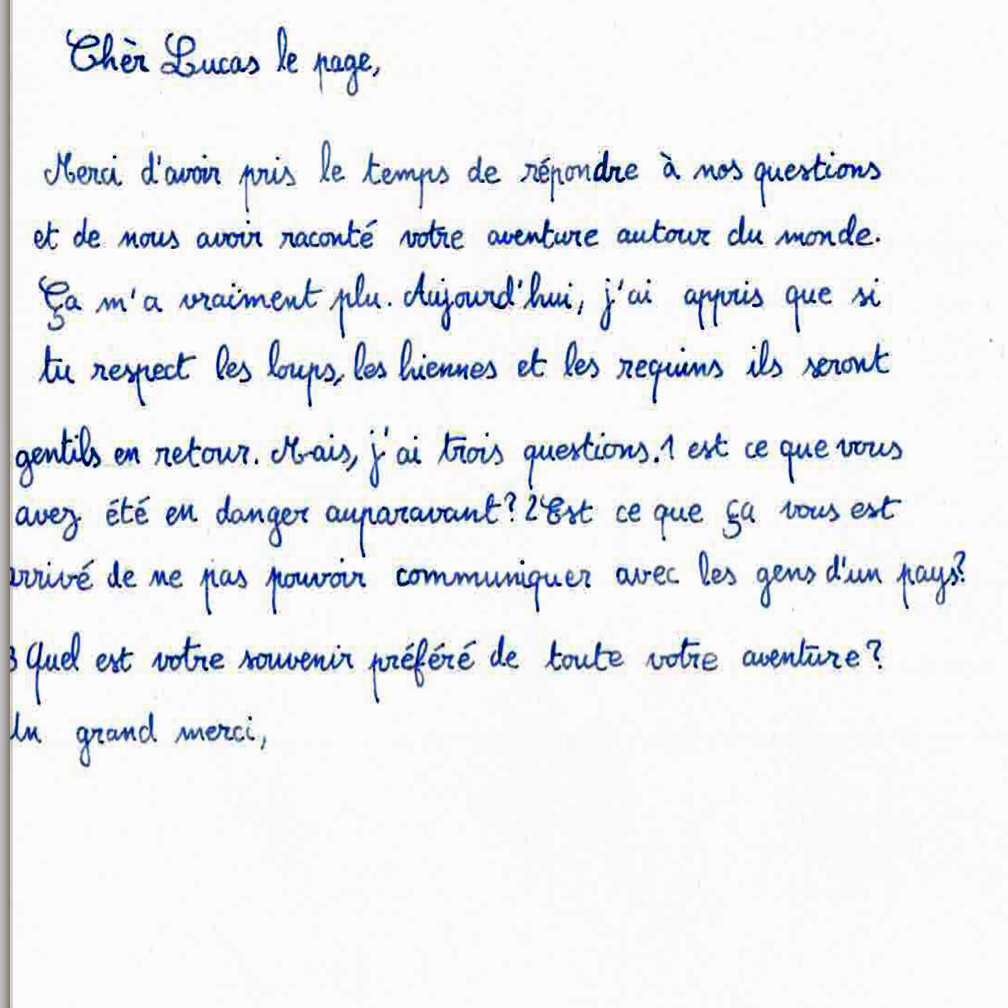 Chèr Lucas le page,
Merci d'avoir pris le temps de répondre à nos questions
et de nous avoir raconté votre aventure autour du monde.
Ça m'a vraiment plu. Aujourd'hui, j'ai appris que si
tu respect les loups, les hiennes et les requins ils seront
gentils en retour. Mais, j'ai trois questions. 1 est ce que vous
avez été en danger auparavant? 2 Est ce que ça vous est
arrivé de ne pas pouvoir communiquer avec les gens d'un pays?
3 Quel est votre souvenir préféré de toute votre aventure?
Un grand merci,